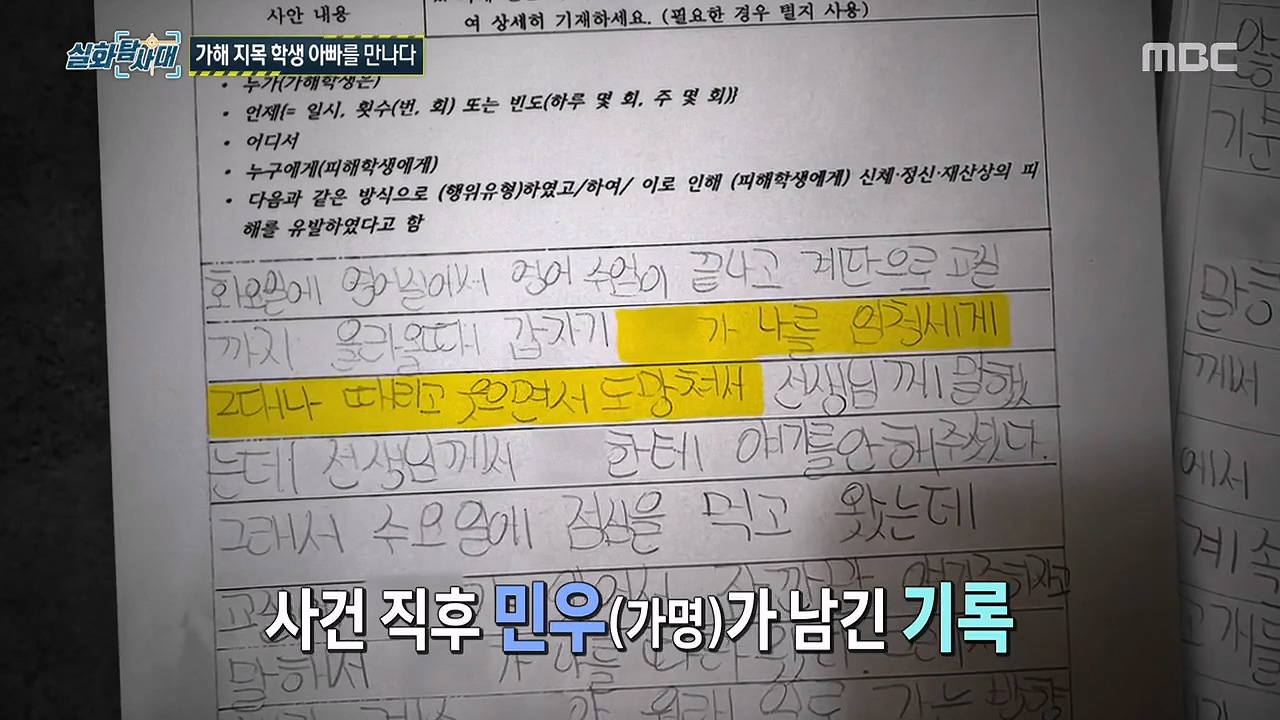 사안 내용
여 상세히 기재하세요. (필요한 경우 별지 사용)
실화탐사대
가해 지목 학생 아빠를 만나다
MBC
• 누가(가해학생은)
• 언제{= 일시, 횟수(번, 회) 또는 빈도(하루 몇 회, 주 몇 회)}
• 어디서
• 누구에게(피해학생에게)
• 다음과 같은 방식으로 (행위유형)하였고/하여/ 이로 인해 (피해학생에게) 신체·정신·재산상의 피
해를 유발하였다고 함
화요일에 영어실에서 영어 수업이 끝나고 계단으로 교실
까지 올라올때 갑자기 가 나를 엄청세게
그때나 때리고 웃으면서 도망쳐서 선생님께 말했
는데 선생님께서 한테 얘기를안해주셨다.
그래서 수요일에 점심을 먹고 왔는데
말해서 가 나를
사건 직후 민우(가명)가 남긴 기록
기분
말등
께서
에서
계속